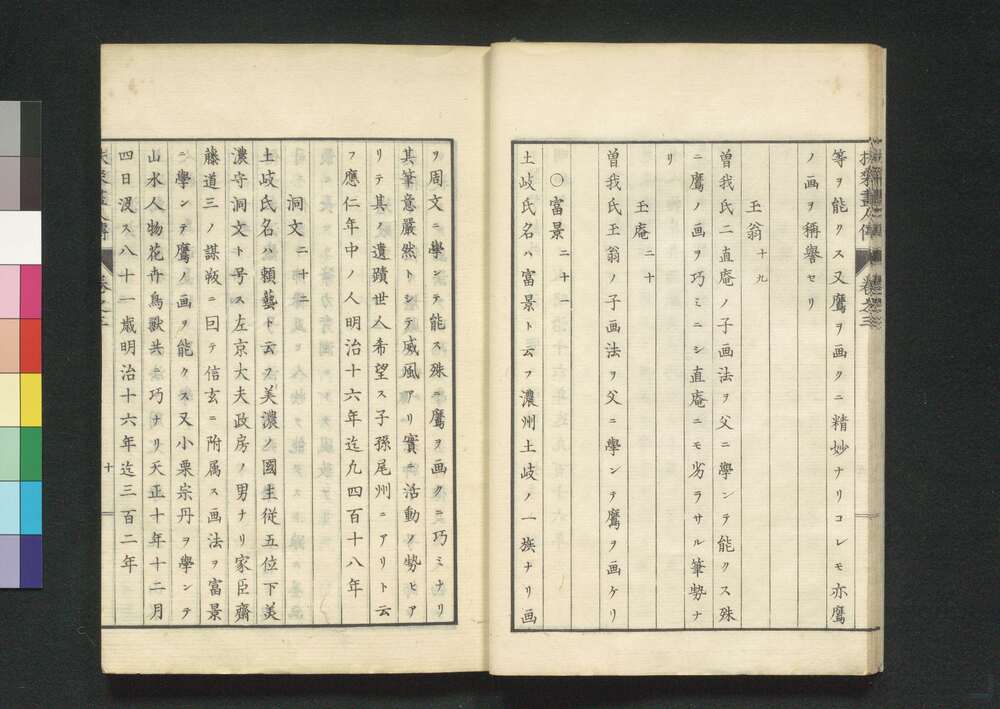 等ヲ能クス又鷹ヲ画クニ精妙ナリコレモ亦鷹
ノ画ヲ称誉セリ
玉翁 十九
曽我氏二直庵ノ子画法ヲ父ニ學ンテ能クス殊
ニ鷹ノ画ヲ巧ミニシ直庵ニモ劣ラサル筆勢ナ
リ
玉庵 二十
曽我氏玉翁ノ子画法ヲ父ニ學ンテ鷹ヲ画ケリ
〇富景 二十一
土岐氏名ハ富景ト云フ濃州土岐ノ一族ナリ画
ヲ周文ニ學ンテ能ス殊ニ鷹ヲ画クニ巧ミナリ
其筆意嚴然トシテ威風アリ實ニ活動ノ勢ヒア
リテ其ノ遺蹟世人希望ス子孫尾州ニアリト云
フ應仁年中ノ人明治十六年迄九四百十八年
洞文 二十二
土岐氏名ハ頼藝ト云フ美濃ノ國主従五位下美
濃守洞文ト号ス左京大夫政房ノ男ナリ家臣齋
藤道三ノ謀叛ニ回テ信玄ニ附属ス画法ヲ富景
ニ學ンテ鷹ノ画ヲ能クス又小栗宗丹ヲ學ンテ
山水人物花卉鳥獣共ニ巧ナリ天正十年十二月
四日没ス八十一歳明治十六年迄三百二年
十